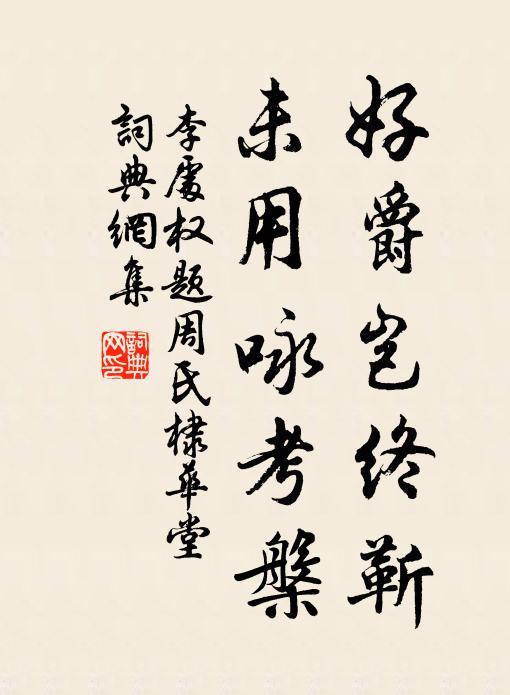 好爵岂终靳
未用咏考槃
李處权题周氏棣華堂
詞典網集
詞典网印